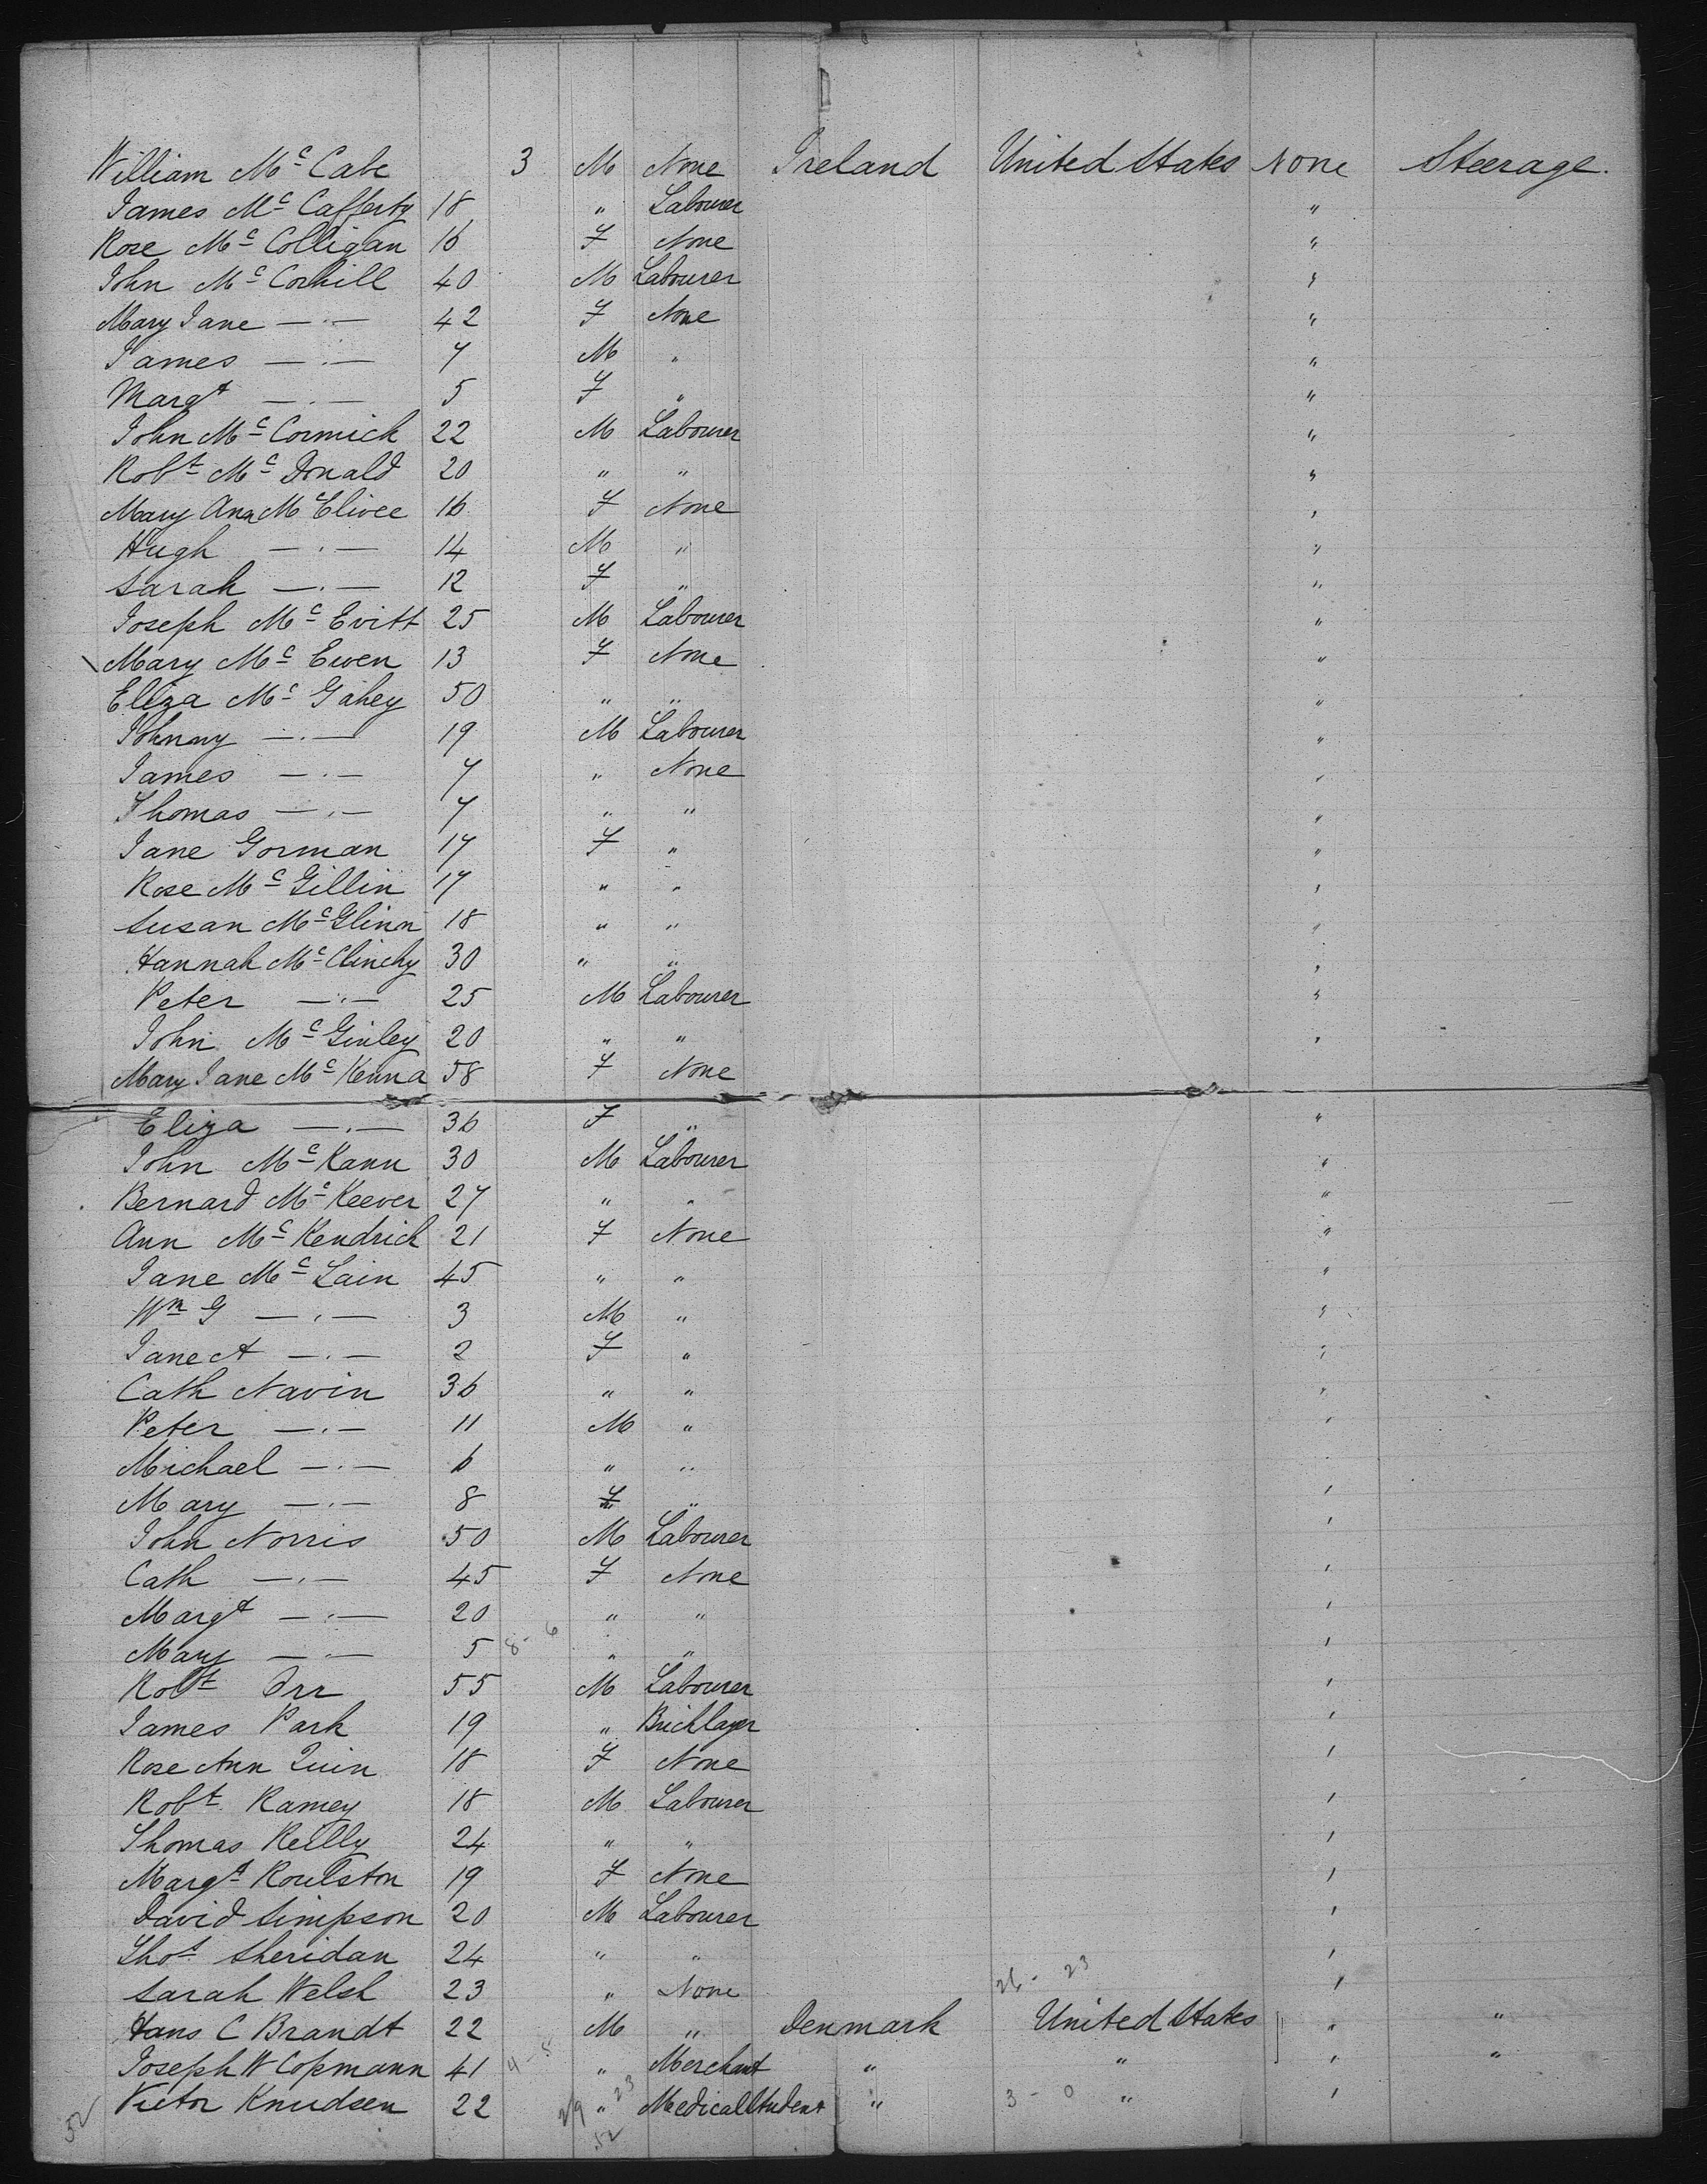 William Mc Cabe 3 M None Ireland United States None Steerage.
James Mc Cafferty 18 " Labourer "
Rose Mc Colligan 16 F None "
John Mc Corkill 40 M Labourer "
Mary Jane —.— 42 F None "
James —.— 7 M " "
Margt —.— 5 F " "
John Mc Cormick 22 M Labourer "
Robt Mc Donald 20 " " "
Mary Ann Mc Elivee 16 F None "
Hugh —.— 14 M " "
Sarah —.— 12 F " "
Joseph Mc Evitt 25 M Labourer "
Mary Mc Ewen 13 F None "
Eliza Mc Gahey 50 " " "
Johnny —.— 19 M Labourer "
James —.— 7 " None "
Thomas —.— 7 " " "
Jane Gorman 17 F " "
Rose Mc Gillin 17 " " "
Susan Mc Glinn 18 " " "
Hannah Mc Clinchy 30 " " "
Peter —.— 25 M Labourer "
John Mc Ginley 20 " " "
Mary Jane Mc Kenna 58 F None
Eliza —.— 36 F " "
John Mc Kann 30 M Labourer "
Bernard Mc Keever 27 " " "
Ann Mc Kendrick 21 F None "
Jane Mc Lain 45 " " "
Wm G —.— 3 M " "
Jane A —.— 2 F " "
Cath Navin 36 " " "
Peter —.— 11 M " "
Michael —.— 6 " "
Mary —.— 8 F " "
John Norris 50 M Labourer "
Cath —.— 45 F None "
Margt —.— 20 " " "
Mary —.— 5 8 - 6 " " "
Robt Orr 55 M Labourer "
James Park 19 " Bricklayer "
Rose Ann Quin 18 F None "
Robt Ramey 18 M Labourer "
Thomas Reilly 24 " " "
Margt Roulston 19 F None "
David Simpson 20 M Labourer "
Thos Sheridan 24 " " "
Sarah Welsh 23 " None 26 - 23 "
Hans C Brandt 22 M " Denmark United States " "
Joseph W Copmann 41 4 - 8 " Merchant " " " "
Victor Knudsen 22 29 " 23 Medical Student " 3 - 0 " "
52 52